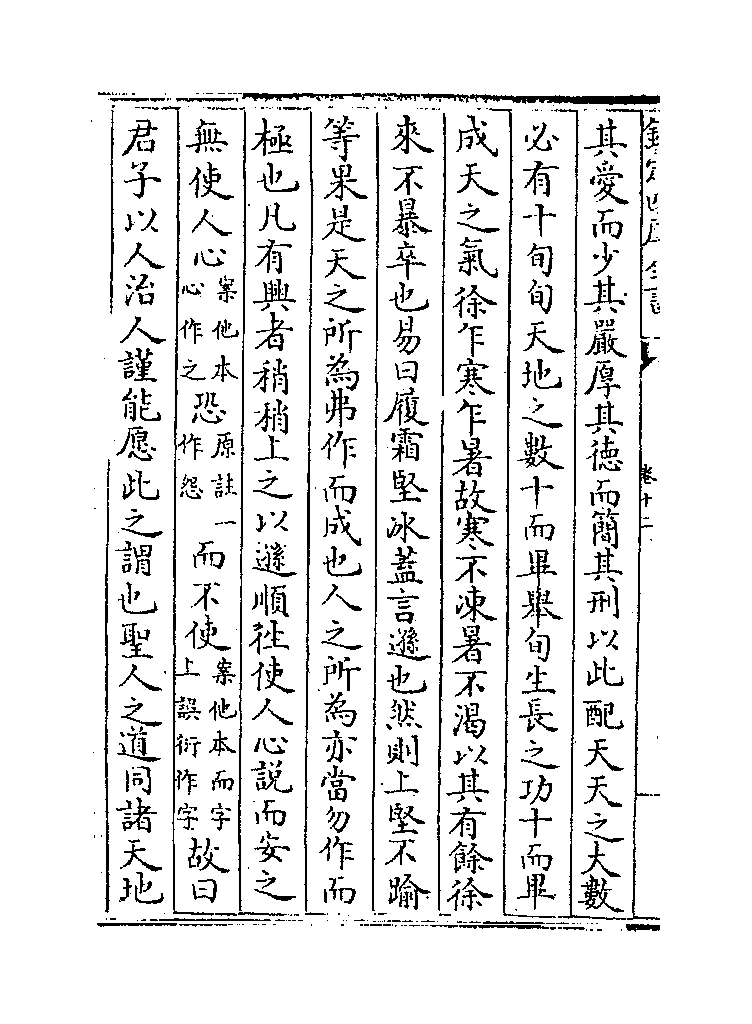 欽定四庫全書
卷十二
其愛而少其嚴厚其徳而簡其刑以此配天天之大數
必有十旬旬天地之數十而畢舉旬生長之功十而畢
成天之氣徐乍寒乍暑故寒不凍暑不渴以其有餘徐
來不暴卒也易曰履霜堅冰蓋言遜也然則上堅不踰
等果是天之所為弗作而成也人之所為亦當勿作而
極也凡有興者稍稍上之以遜順往使人心説而安之
無使人心案他本心作之恐原註一作怨而不使案他本而字上誤衍作字故曰
君子以人治人謹能愿此之謂也聖人之道同諸天地